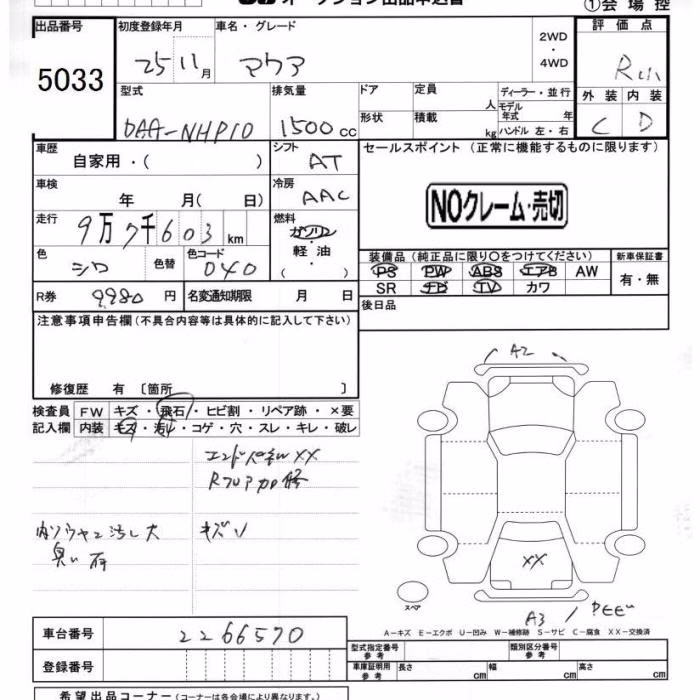 オークション出品申込書 ①会場控
出品番号 初度登録年月 車名・グレード 2WD・4WD 評価点
5033 25 11月 R
外装 内装
C D
型式 排気量 ドア 定員 人 ディーラー・並行
DAA-NHP10 1500cc 形状 積載 kg モデル年式 年 ハンドル 左・右
車歴 シフト セールスポイント (正常に機能するものに限ります)
自家用・( ) AT
車検 年 月( 日) 冷房 AAC
NOクレーム・売切
走行 9万7千603km 燃料 ガソリン・軽油・
色 シロ 色替 色コード 040
装備品 (純正品に限り○をつけてください) 新車保証書
PS PW ABS エアB AW 有・無
SR ナビ TV カワ
R券 9980円 名変通知期限 月 日 後日品
注意事項申告欄(不具合内容等は具体的に記入して下さい)
修復歴 有 〔箇所 〕
検査員記入欄 FW キズ・飛石・ヒビ割・リペア跡・×要
内装 キズ・汚れ・コゲ・穴・スレ・キレ・破レ
エンドパネルXX
Rフロア加修
内ソウヤケ汚し大 キズ
臭い有
A2
XX
スペア
A3
A－キズ E－エクボ U－凹み W－補修跡 S－サビ C－腐食 XX－交換済
車台番号 2266570
型式指定番号 参考 類別区分番号 参考
登録番号 車庫証明用 参考 長さ cm 幅 cm 高さ cm
希望出品コーナー (コーナーは各会場により異なります。)